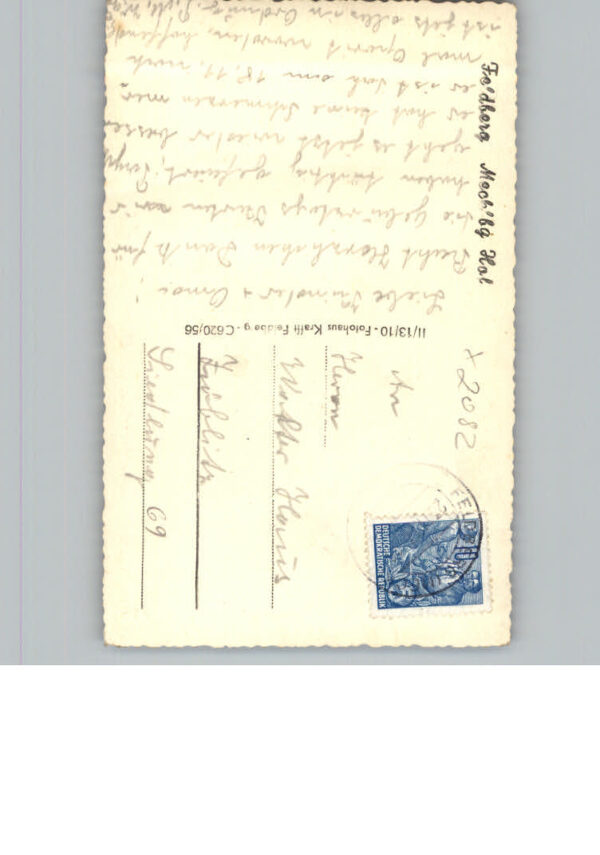 Feldberg Meckl'bg Hol
Liebe Kinder + Oma!
Recht Herzlichen Dank für
die Geburtstags Karten wir
haben tüchtig gefeiert,
geht es jetzt wieder besser
er hat keine Schmerzen mehr
es ist doch am 18. 11. noch
mal Operit worden, hoffende
ist jetz alles in Ordnung.
II/13/10 - Fotohaus Krafft Feldbe g - C620/56
x 2082
An
Herrn
Walter
Zöblitz
Siedlung 69
DEUTSCHE
DEMOKRATISCHE REPUBLIK
FELD